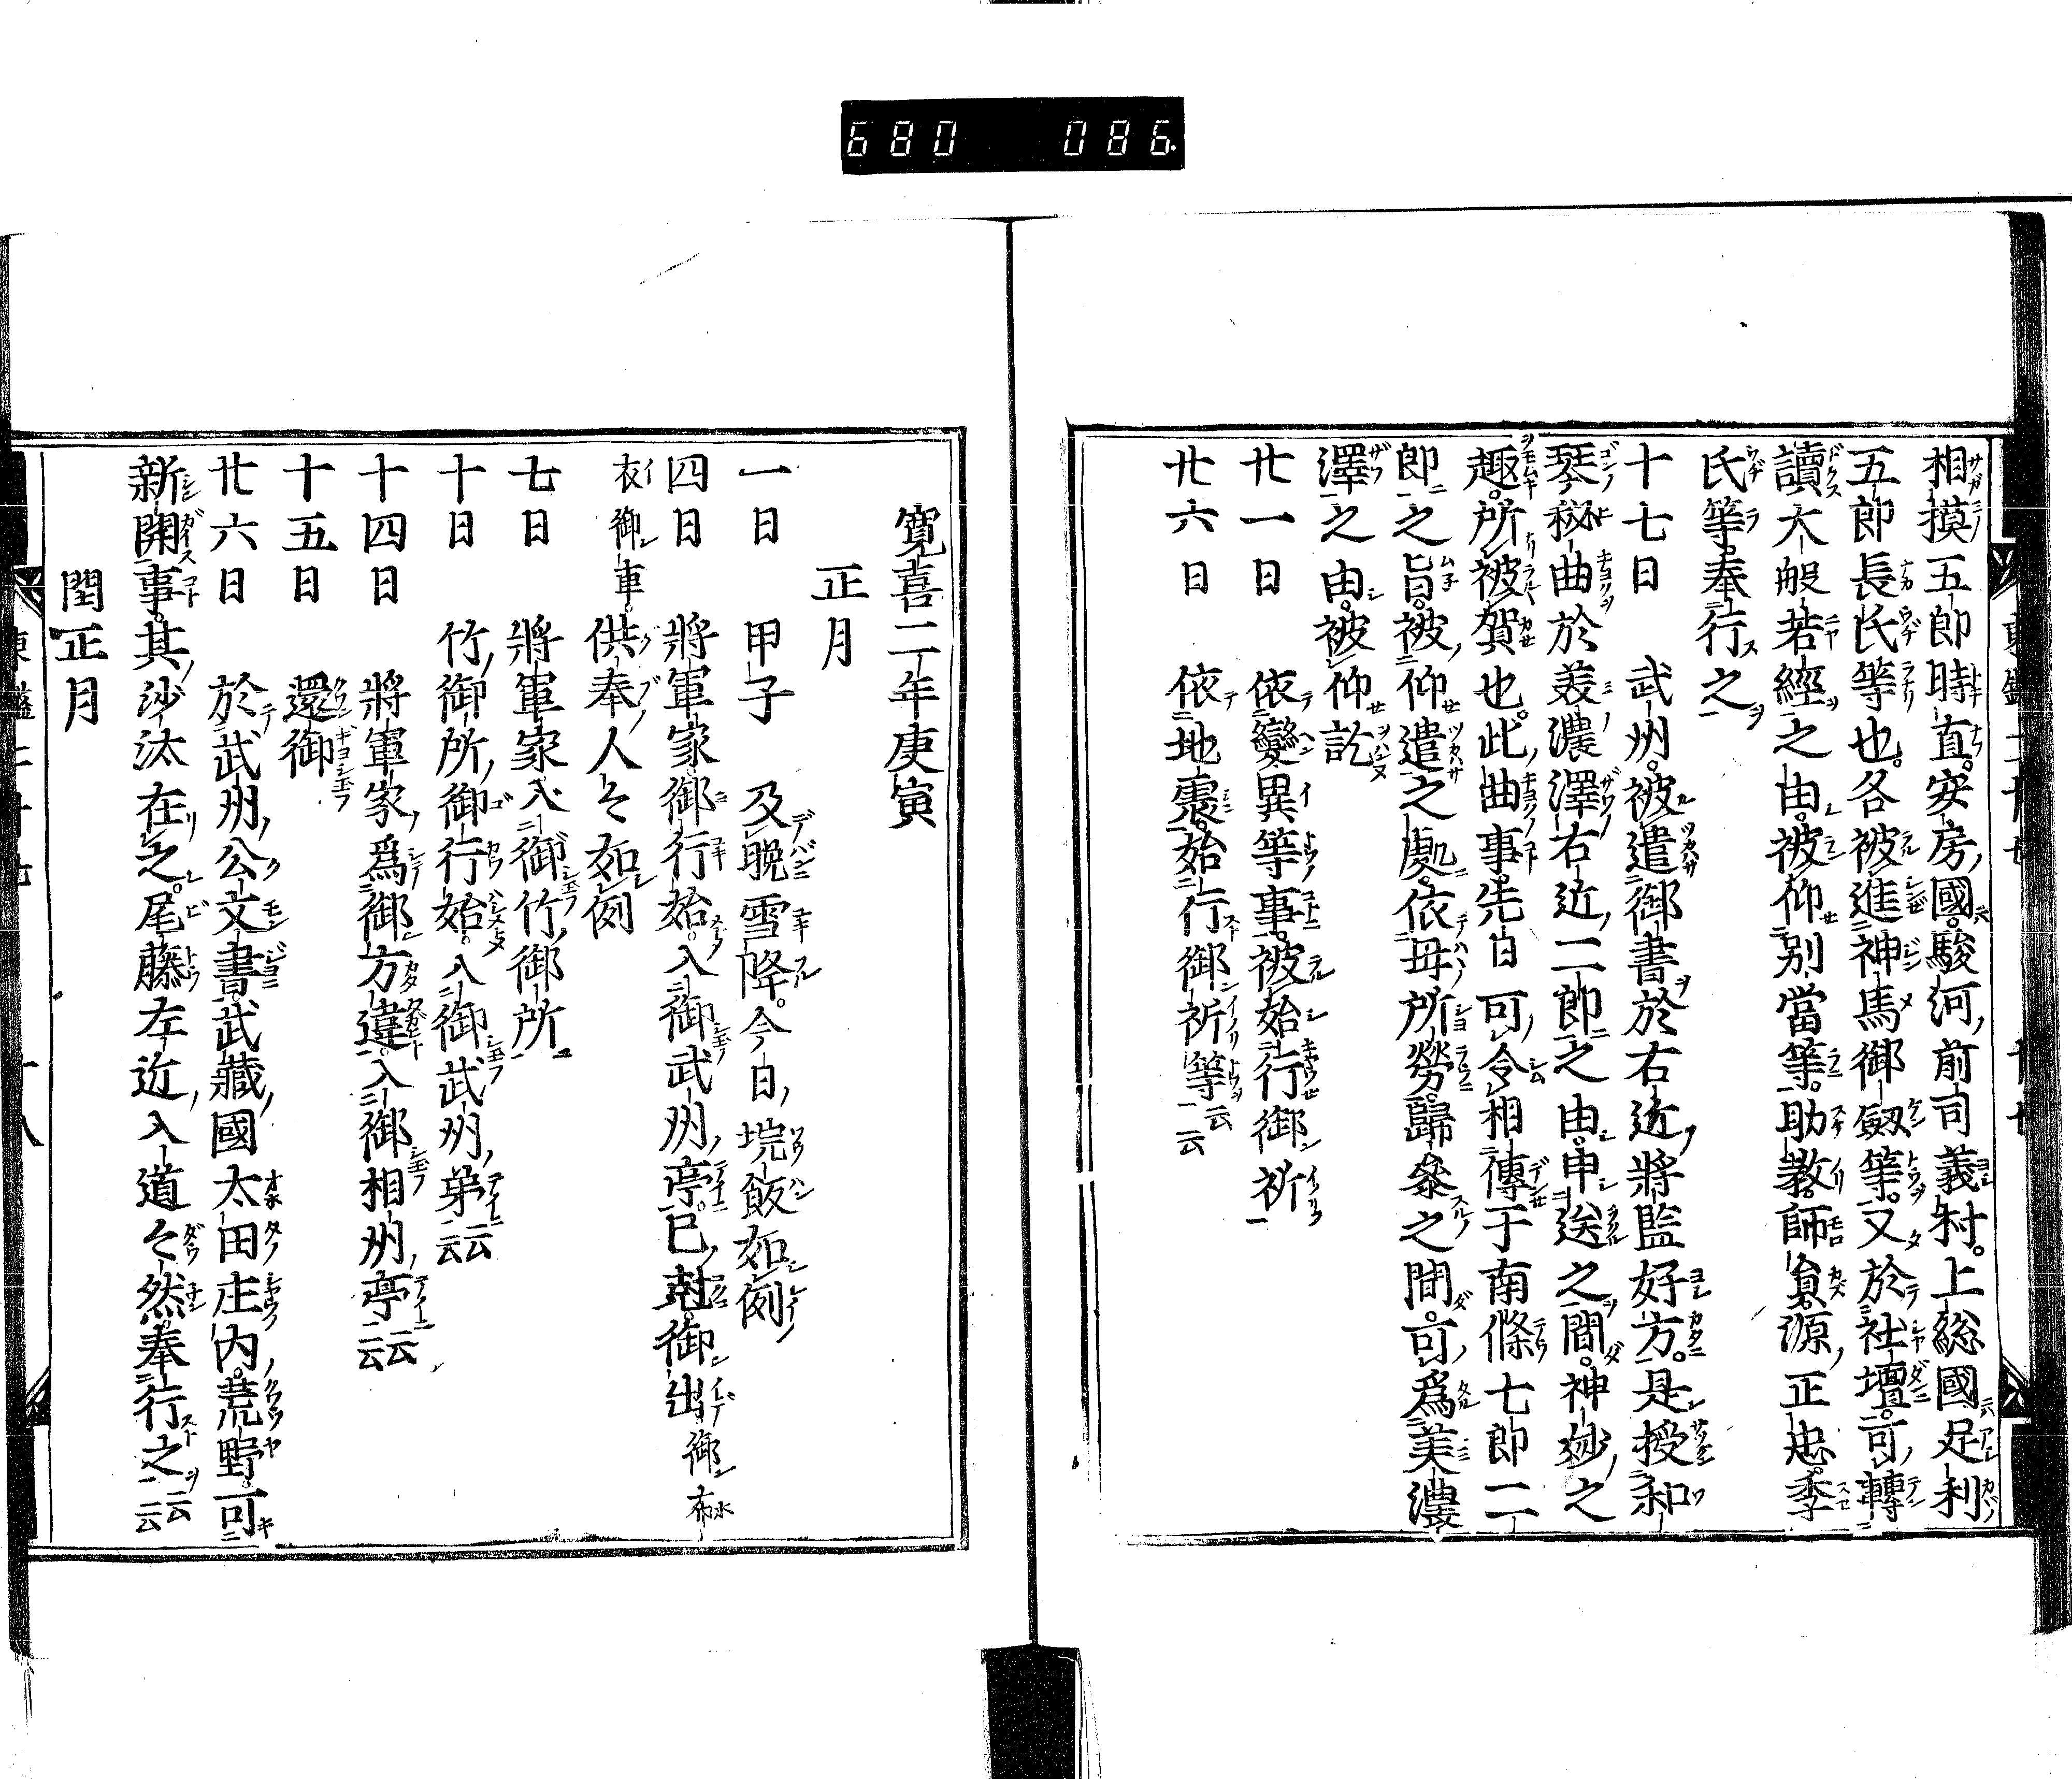 680 086
相摸五郎時直。安房國。駿河前司義村。上総國足利
五郎長氏等也。各被進神馬御劔等。又於社壇。可轉
讀大般若經之由。被仰別當等。助教師員。源正忠。季
氏等。奉行之
十七日 武州。被遣御書於右近將監好方。是授和
琴秘曲於美濃澤右近二郎之由。申送之間。神妙之
趣。所被賀也。此曲事。先日可令相傳于南條七郎二
郎之旨。被仰遣之處。依母所勞。歸參之間。可爲美濃
澤之由。被仰訖
廿一日 依變異等事。被始行御祈
廿六日 依地震。始行御祈等云云
寛喜二年庚寅
正月
一日 甲子 及晩雪降。今日垸飯如例
四日 將軍家御行始。入御武州亭。巳尅。御出御布
衣御車。供奉人々如例
七日 將軍家入御竹御所
十日 竹御所御行始。入御武州弟云云
十四日 將軍家爲御方違。入御相州亭云云
十五日 還御
廿六日 於武州公文書。武藏國太田庄内。荒野可
新開事。其沙汰在之。尾藤左近入道々然。奉行之云云
閏正月